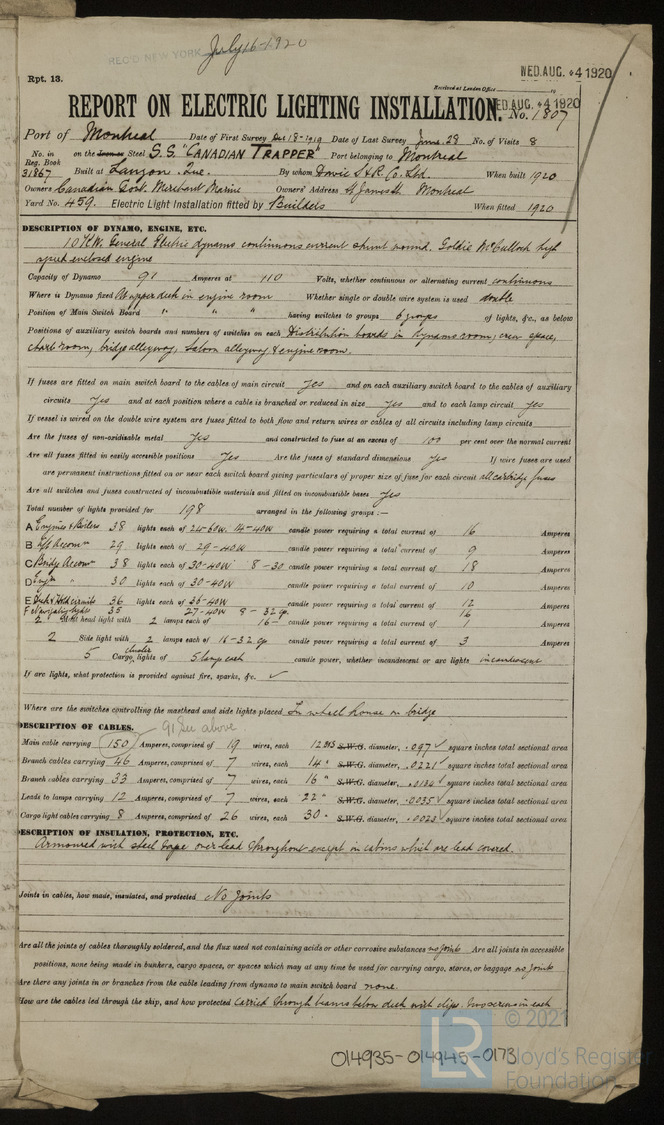 REC'D NEW YORK July 16-1920
Rpt. 13.
WED. AUG. 4 1920
Received at London Office
WED. AUG. 4 1920
REPORT ON ELECTRIC LIGHTING INSTALLATION. No. 1807
Port of Montreal Date of First Survey Dec 18-1919 Date of Last Survey June 28 No. of Visits 8
No. in Reg. Book on the Iron or Steel S.S. "CANADIAN TRAPPER" Port belonging to Montreal
31867 Built at Lauzon, Que. By whom Davie S & R Co. Ltd. When built 1920
Owners Canadian Govt. Merchant Marine Owners' Address St James St. Montreal
Yard No. 459. Electric Light Installation fitted by Builders When fitted 1920
DESCRIPTION OF DYNAMO, ENGINE, ETC.
10 KW. General Electric dynamo continuous current shunt wound. Goldie McCulloch high
speed enclosed engine
Capacity of Dynamo 91 Amperes at 110 Volts, whether continuous or alternating current continuous
Where is Dynamo fixed At upper deck in engine room Whether single or double wire system is used double
Position of Main Switch Board " " " having switches to groups 6 groups of lights, &c., as below
Positions of auxiliary switch boards and numbers of switches on each Distribution boards in dynamo room, crew space,
chart room, bridge alleyway, saloon alleyway & engine room.
If fuses are fitted on main switch board to the cables of main circuit yes and on each auxiliary switch board to the cables of auxiliary
circuits yes and at each position where a cable is branched or reduced in size yes and to each lamp circuit yes
If vessel is wired on the double wire system are fuses fitted to both flow and return wires or cables of all circuits including lamp circuits
Are the fuses of non-oxidisable metal yes and constructed to fuse at an excess of 100 per cent over the normal current
Are all fuses fitted in easily accessible positions yes Are the fuses of standard dimensions yes If wire fuses are used
are permanent instructions fitted on or near each switch board giving particulars of proper size of fuse for each circuit all cartridge fuses
Are all switches and fuses constructed of incombustible materials and fitted on incombustible bases yes
Total number of lights provided for 198 arranged in the following groups :—
A Engines & Boilers 38 lights each of 24-60W. 14-40W candle power requiring a total current of 16 Amperes
B Aft Accomn 29 lights each of 29-40W candle power requiring a total current of 9 Amperes
C Bridge Accomn 38 lights each of 30-40W 8-30 candle power requiring a total current of 18 Amperes
D Engrs " 30 lights each of 30-40W candle power requiring a total current of 10 Amperes
E Deck & Hold circuits 36 lights each of 36-40W candle power requiring a total current of 12 Amperes
F Navigating lights 35 27-40W 8-32 cp. 16
2 Mast head light with 2 lamps each of 16- candle power requiring a total current of 1 Amperes
2 Side light with 2 lamps each of 16-32 cp candle power requiring a total current of 3 Amperes
5 Cargo cluster lights of 5 lamps each candle power, whether incandescent or arc lights incandescent
If arc lights, what protection is provided against fire, sparks, &c. ✓
Where are the switches controlling the masthead and side lights placed In wheel house on bridge
DESCRIPTION OF CABLES. 91 See above
Main cable carrying 150 Amperes, comprised of 19 wires, each 12 B&S S.W.G. diameter, .097 ✓ square inches total sectional area
Branch cables carrying 46 Amperes, comprised of 7 wires, each 14 " S.W.G. diameter, .0221 ✓ square inches total sectional area
Branch cables carrying 33 Amperes, comprised of 7 wires, each 16 " S.W.G. diameter, .0130 ✓ square inches total sectional area
Leads to lamps carrying 12 Amperes, comprised of 7 wires, each 22 " S.W.G. diameter, .0035 ✓ square inches total sectional area
Cargo light cables carrying 8 Amperes, comprised of 26 wires, each 30 " S.W.G. diameter, .0023 ✓ square inches total sectional area
DESCRIPTION OF INSULATION, PROTECTION, ETC.
Armoured with steel tape over lead throughout except in cabins which are lead covered.
Joints in cables, how made, insulated, and protected No Joints
Are all the joints of cables thoroughly soldered, and the flux used not containing acids or other corrosive substances no joints Are all joints in accessible
positions, none being made in bunkers, cargo spaces, or spaces which may at any time be used for carrying cargo, stores, or baggage no joints
Are there any joints in or branches from the cable leading from dynamo to main switch board none.
How are the cables led through the ship, and how protected Carried through beams below deck with clips. two screws in each
014935-014945-0173
LR
© 2021
Lloyd's Register
Foundation